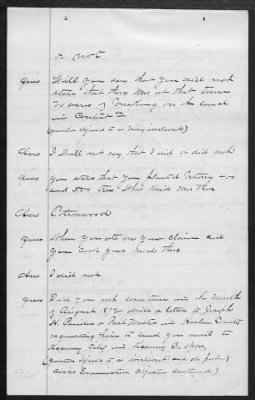 or not
Ques Will you say that you did not
state that there was at that time
acres of breaking on the land
in Contest?
(question objected to as being irrelevant)
Ans I Will not say that I did or did not
Ques You state that you planted between 400
and 500 trees. What kind was they
Ans Cottonwood
Ques When you was on your claim did
you cook your meals there
Ans I did not
Ques Did you not some time in the month
of August 872 write a letter to Joseph
H. Post Master in Harlan County
requesting him to send your mail to
Kearney City in Kearney Co.
(question objected to as irrelevant and not proper
Cross Examination. objection sustained)